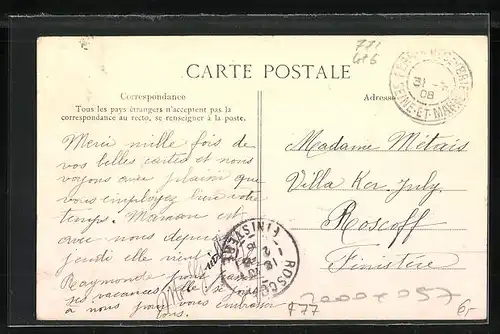 771
CARTE POSTALE
31
08
SEINE-ET-MARNE
Correspondance
Adresse
Tous les pays étrangers n'acceptent pas la
correspondance au recto, se renseigner à la poste.
Merci mille fois de
vos belles cartes et nous
voyons avec plaisir que
vous employez bien votre
temps. Maman est
avec nous depuis
jeudi elle vient
Raymonde pour
ses vacances elle se joint
à nous pour vous embrasser
Madame Métais
Villa Ker July
Roscoff
Finistère
ROSCOFF
FINISTERE
F77
6,-